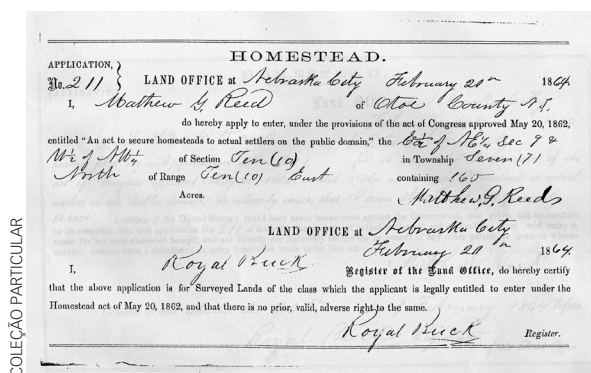 HOMESTEAD.
APPLICATION,
No. 211
LAND OFFICE at Nebraska City February 20th 1864
I, Mathew G. Reed of Otoe County N.T.
do hereby apply to enter, under the provisions of the act of Congress approved May 20, 1862,
entitled “An act to secure homesteads to actual settlers on the public domain,” the E½ of NE¼ Sec 9 &
W½ of NW¼ of Section Ten (10) in Township Seven (7)
North of Range Ten (10) East containing 160
Acres. Matthew. G. Reeds
LAND OFFICE at Nebraska City
February 20th 1864.
I, Royal Buck Register of the Land Office, do hereby certify
that the above application is for Surveyed Lands of the class which the applicant is legally entitled to enter under the
Homestead act of May 20, 1862, and that there is no prior, valid, adverse right to the same.
Royal Buck Register.
COLEÇÃO PARTICULAR